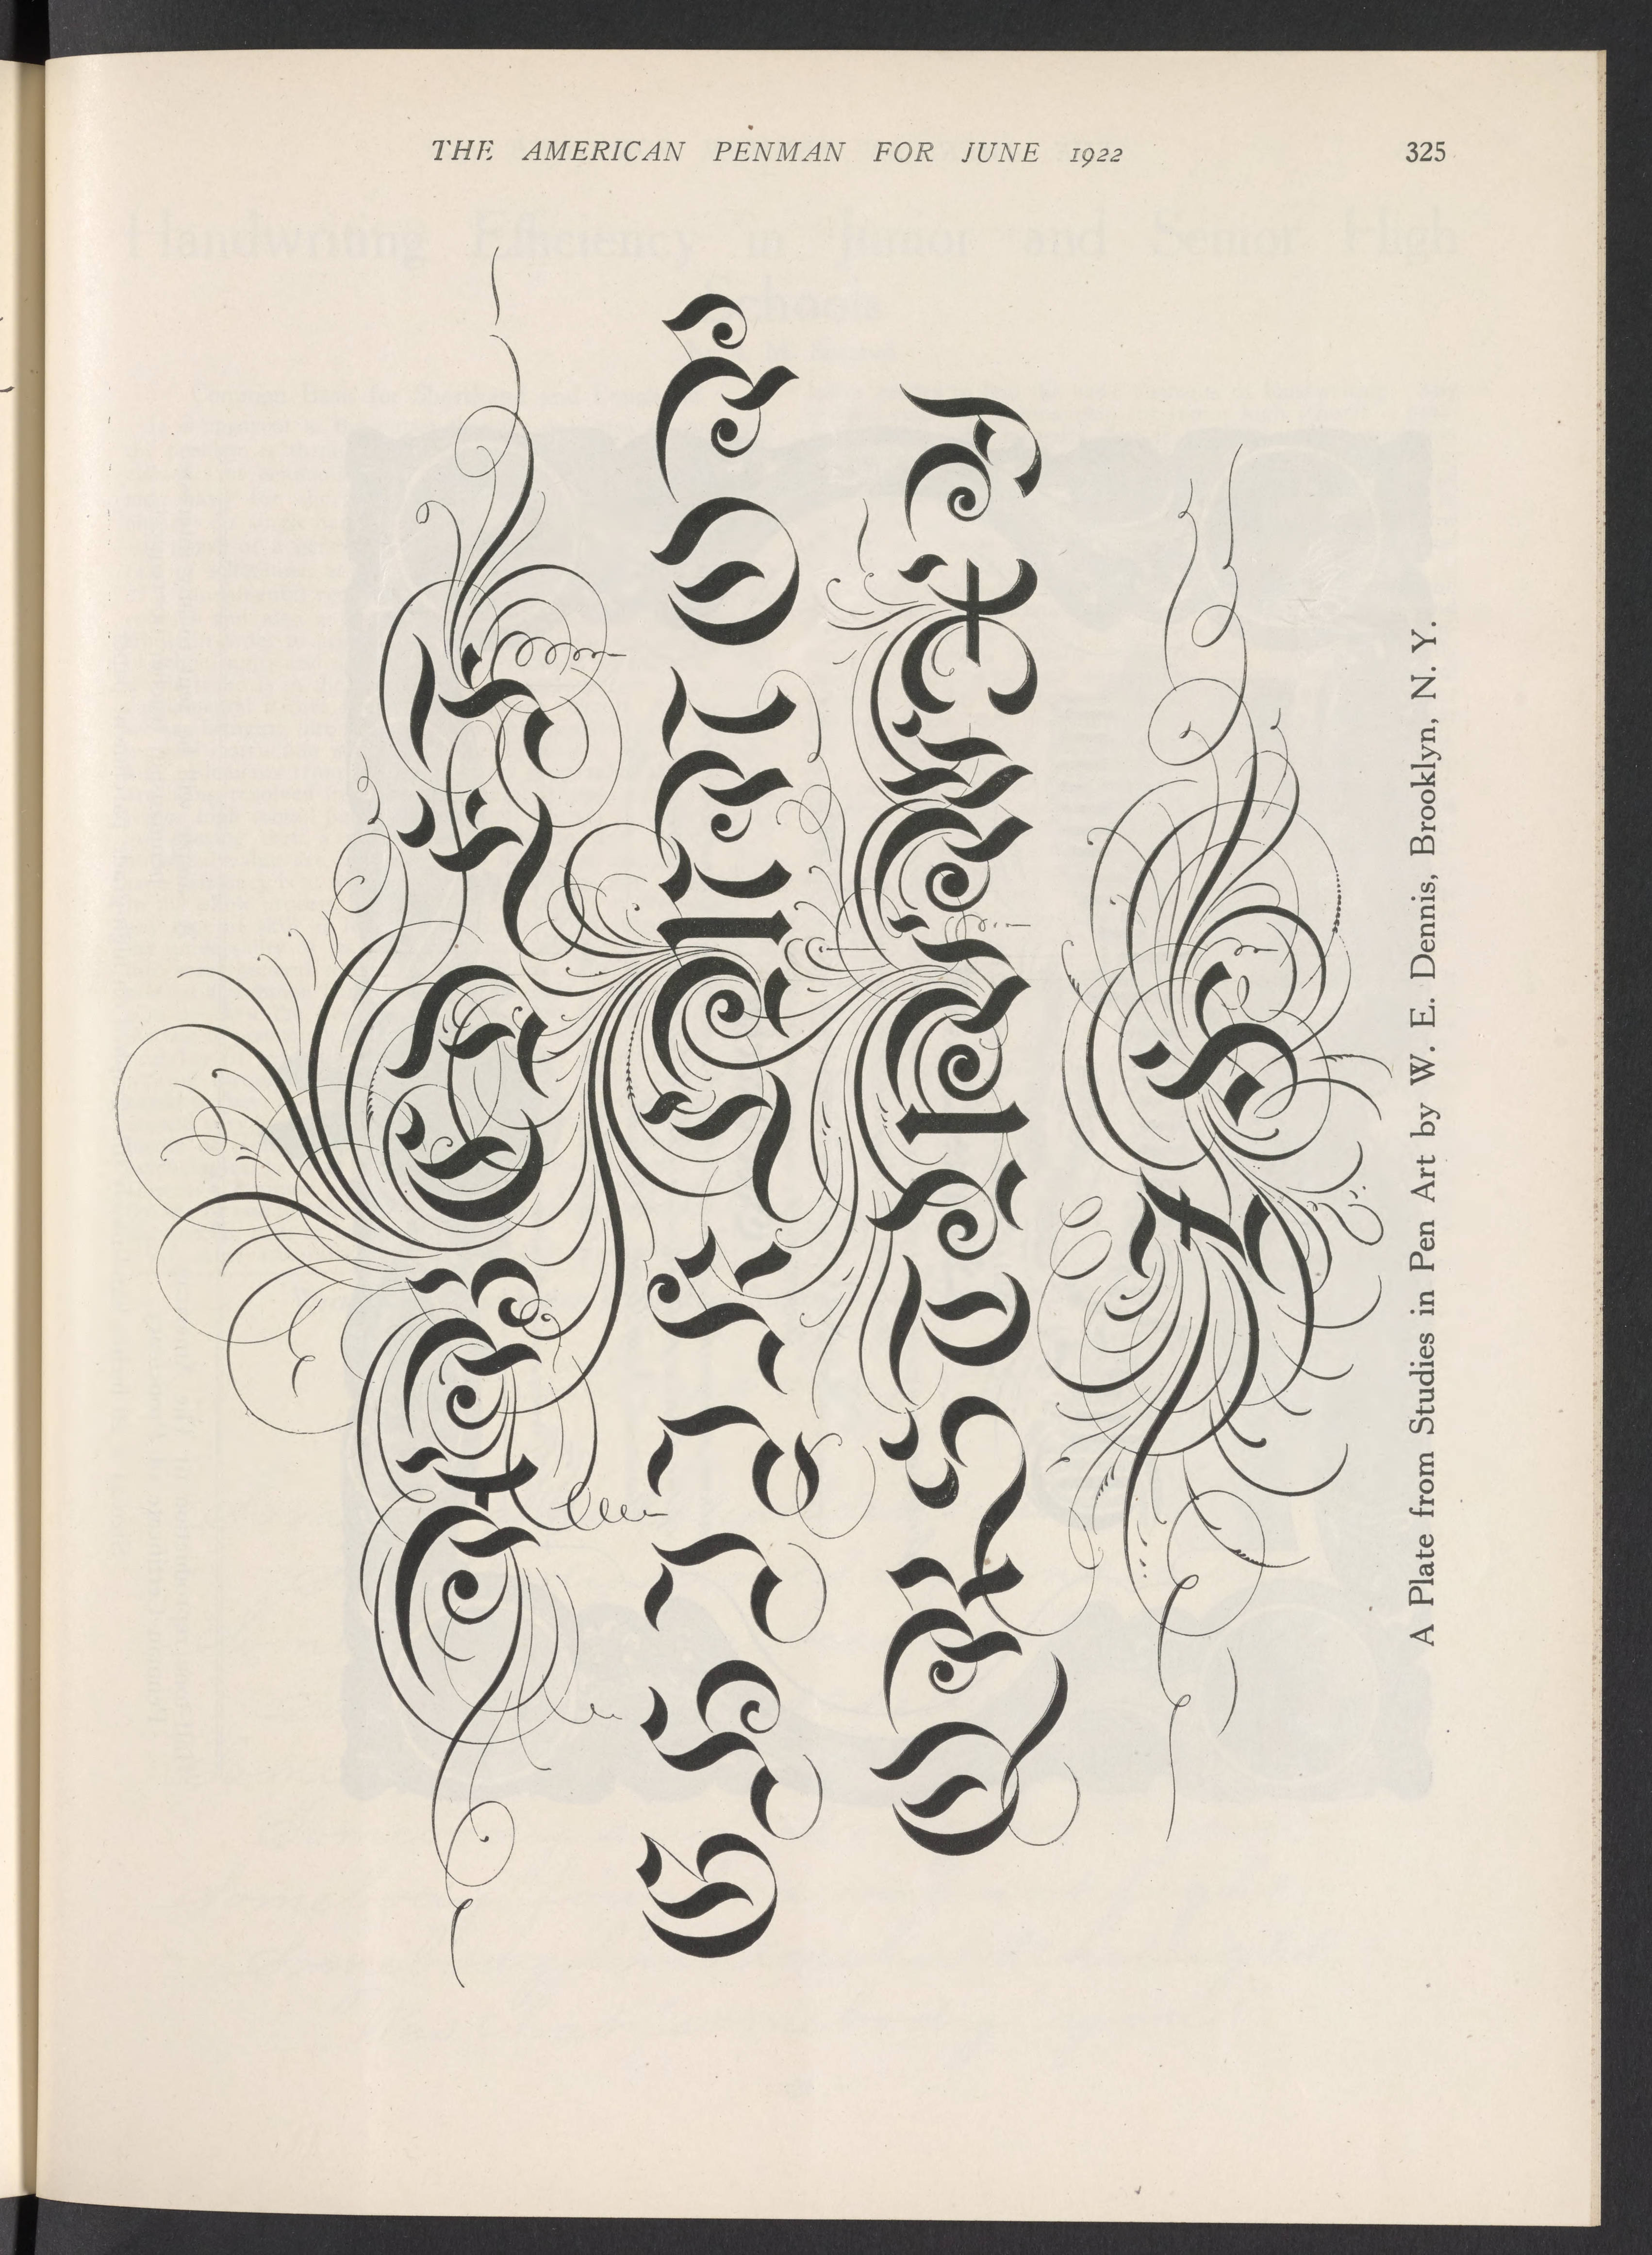 THE AMERICAN PENMAN FOR JUNE 1922 325
A B C D E F
G H I J K L M N O P
Q R S T U V W X Y
Z &
A Plate from Studies in Pen Art by W. E. Dennis, Brooklyn, N. Y.